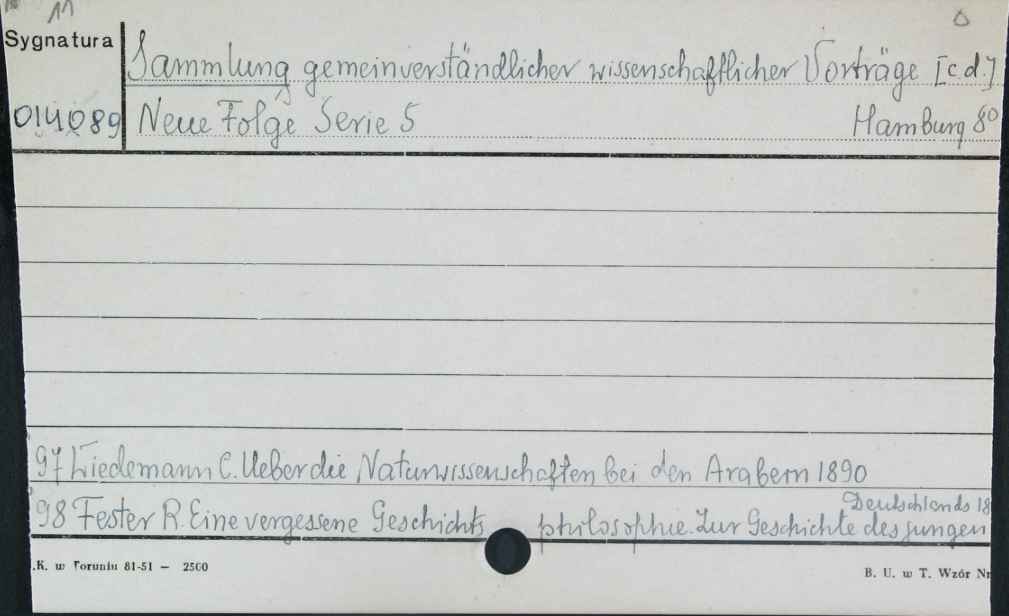 11
Sygnatura
Sammlung gemeinverständlicher wissenschafflicher Vorträge [c.d.]
014089 Neue Folge Serie 5 Hamburg 8°
97 Wiedemann C. Ueber die Naturwissenschaften bei den Arabern 1890
Deutschlands 18
98 Fester R. Eine vergessene Geschichts philosophie. Zur Geschichte des jungen
.K. w Toruniu 81-51 — 2500
B. U. w T. Wzór Nr